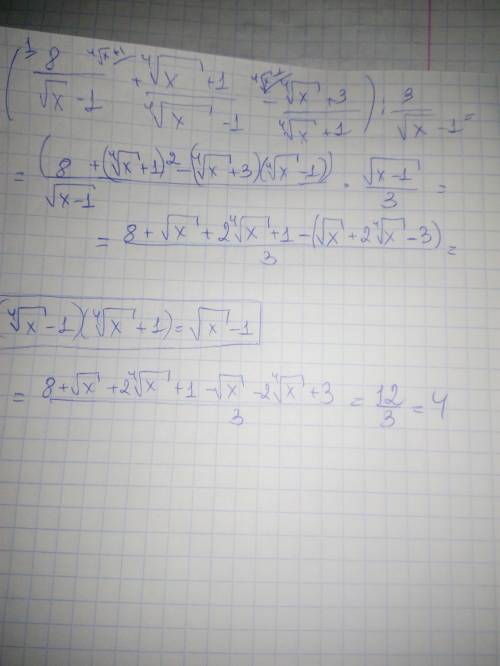 ( 8/(√x - 1) + (⁴√x + 1)/(⁴√x - 1) - (⁴√x + 3)/(⁴√x + 1) ) : 3/(√x - 1) =
= (8 + (⁴√x + 1)² - (⁴√x + 3)(⁴√x - 1))/√x-1 · √x-1/3 =
= (8 + √x + 2⁴√x + 1 - (√x + 2⁴√x - 3))/3 =
(⁴√x - 1)(⁴√x + 1) = √x - 1
= (8 + √x + 2⁴√x + 1 - √x - 2⁴√x + 3)/3 = 12/3 = 4